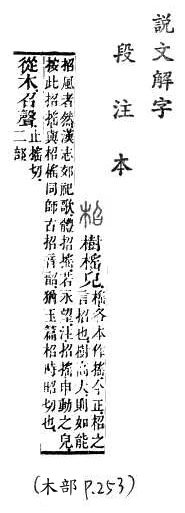 說文解字
段注本
柖 樹搖皃 搖各本作㨱今正柖之
言招也樹高大則如能
招風者然漢志郊祀歌體招搖若永望注招搖申動之皃
按此招搖與柖搖同師古招音韶猶玉篇柖時昭切也
從木召聲 止搖切
二部
(木部 P.253)